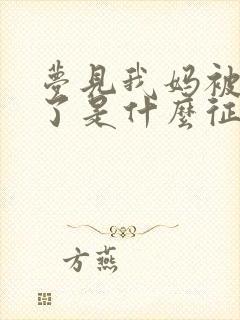 夢見我妈被
了是什麼征
方燕